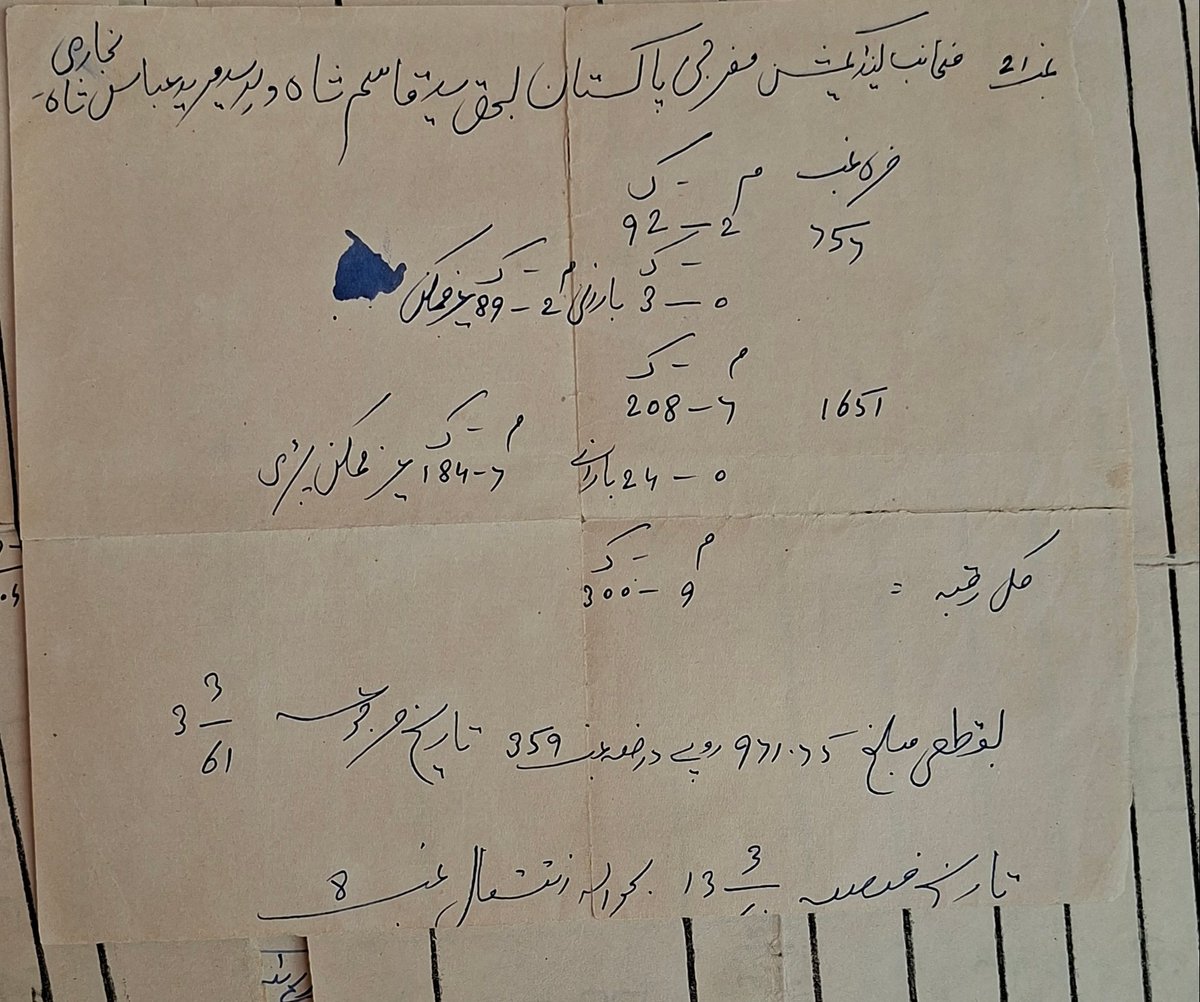 نمبر 21 منجانب لینڈ کمیشن مغربی پاکستان بحق سید قاسم شاہ ولد سید مرید عباس شاہ بخاری
خسرہ نمبر م - ک
757 2 – 92
ک -
0 – 3 بارانی م - ک 2 – 89 غیر ممکن
م - ک
1651 7 – 208
0 – 24 بارانی م - ک 7 – 184 غیر ممکن
م - ک
کل رقبہ = 9 – 300
مبلغ 971.75 روپے 359 تاریخ 3 3/61
تاریخ فیصلہ 13 3 بحوالہ انتقال نمبر 8